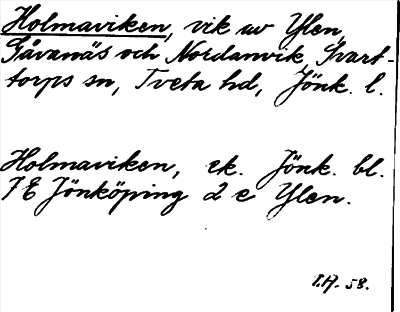 Holmaviken, vik av Ylen,
Gåvanäs och Nordanvik, Svart-
torps sn, Tveta hd, Jönk. l.
Holmaviken, ek. Jönk. bl.
7 E Jönköping 2 e Ylen.
I.H. 58.